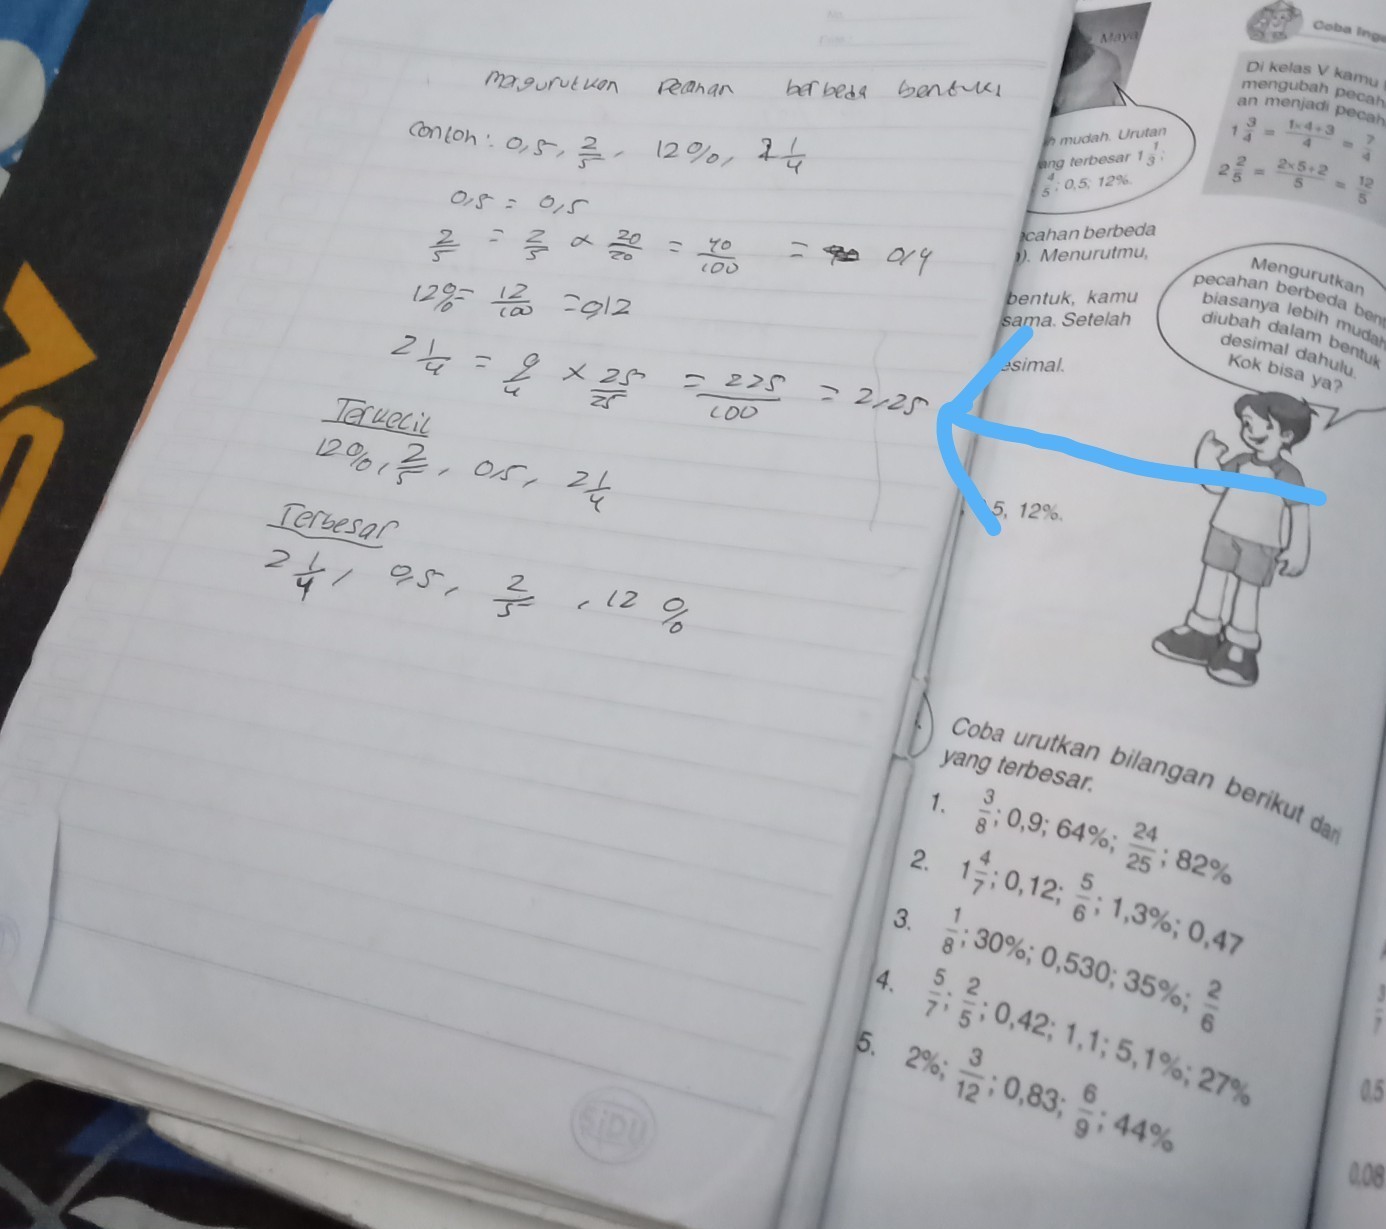 mengurutkan pecahan berbeda bentuk
contoh: 0,5, 2/5, 12%, 2 1/4
0,5 = 0,5
2/5 = 2/5 x 20/20 = 40/100 = 0,4
12% = 12/100 = 0,12
2 1/4 = 9/4 x 25/25 = 225/100 = 2,25
Terkecil
12%, 2/5, 0,5, 2 1/4
Terbesar
2 1/4, 0,5, 2/5, 12%
SiDU
Maya
mudah. Urutan
ang terbesar 1 1/3;
4/5; 0,5; 12%.
cahan berbeda
). Menurutmu,
bentuk, kamu
sama. Setelah
esimal.
5, 12%.
Coba Inga
Di kelas V kamu
mengubah pecah
an menjadi pecah
1 3/4 = 1×4+3/4 = 7/4
2 2/5 = 2×5+2/5 = 12/5
Mengurutkan
pecahan berbeda ben
biasanya lebih mudah
diubah dalam bentuk
desimal dahulu.
Kok bisa ya?
Coba urutkan bilangan berikut dari
yang terbesar.
1. 3/8; 0,9; 64%; 24/25; 82%
2. 1 4/7; 0,12; 5/6; 1,3%; 0,47
3. 1/8; 30%; 0,530; 35%; 2/6
4. 5/7; 2/5; 0,42; 1,1; 5,1%; 27%
5. 2%; 3/12; 0,83; 6/9; 44%
0,5
0,08